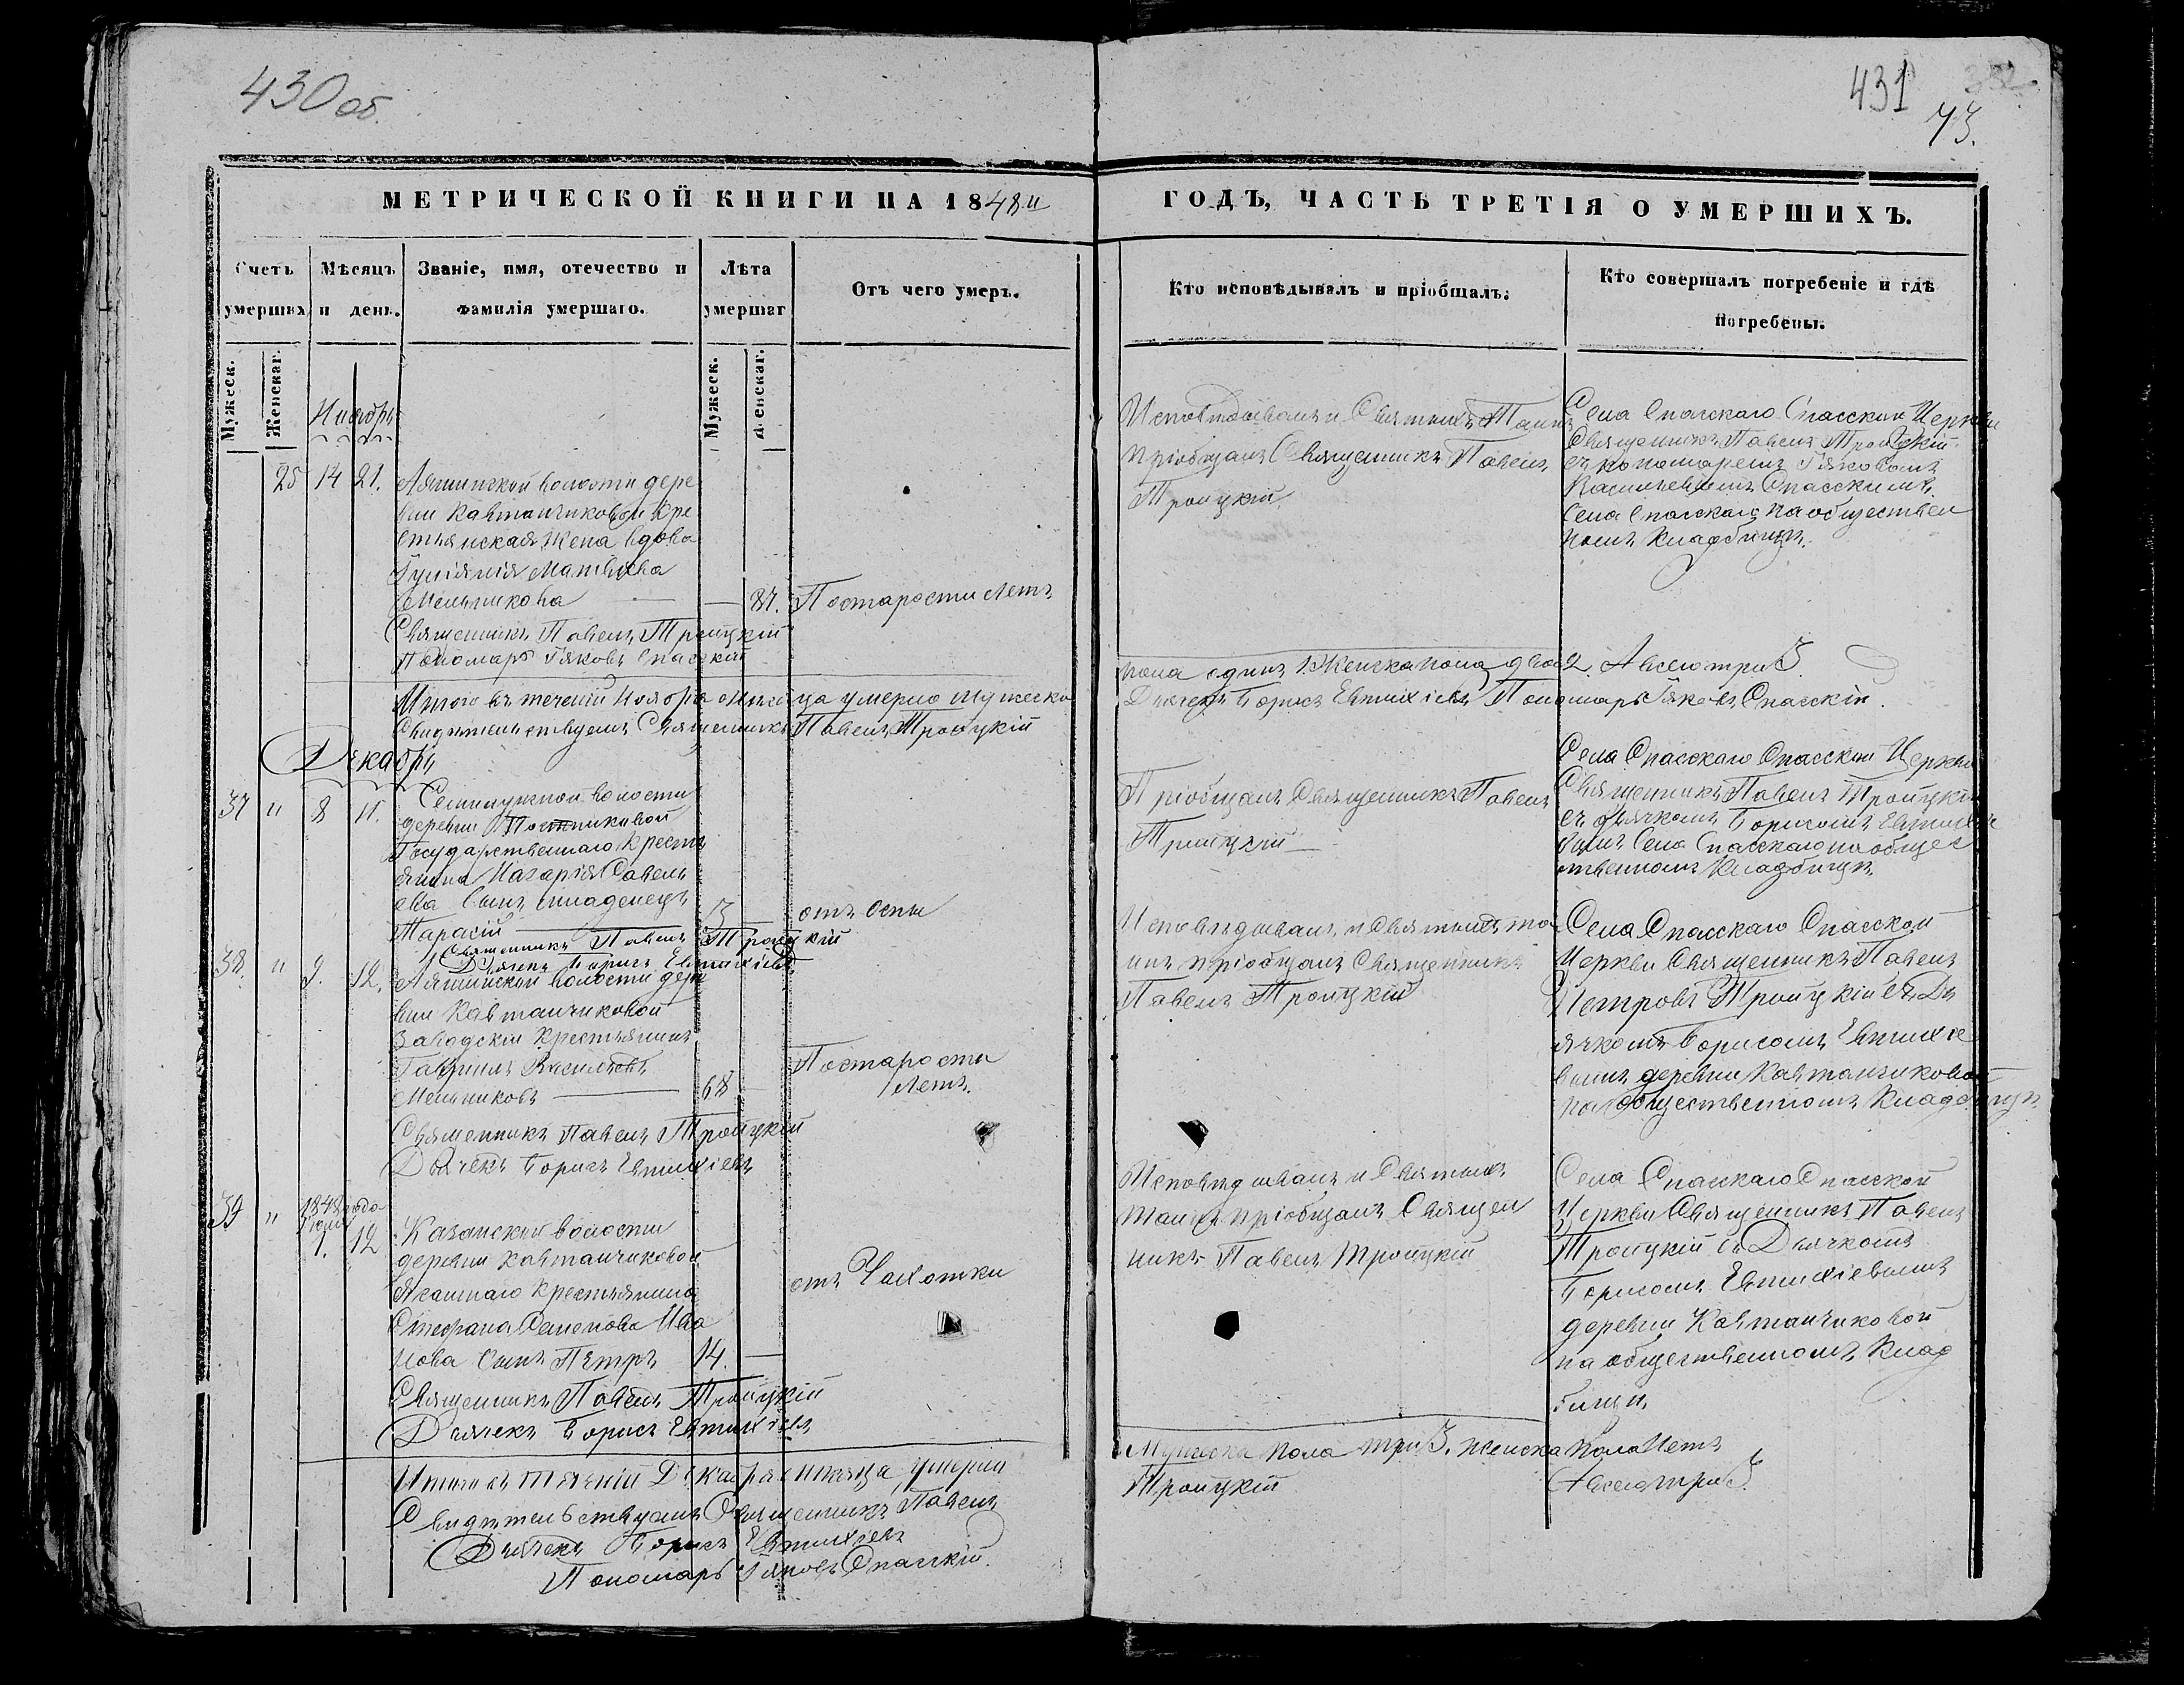 430 об.
431
73.
МЕТРИЧЕСКОЙ КНИГИ НА 1848й
ГОДЪ, ЧАСТЬ ТРЕТІЯ О УМЕРШИХЪ.
Счетъ умерших
Мѣсяцъ и день.
Званіе, имя, отечество и фамилія умершаго.
Лѣта умершаг
Отъ чего умеръ.
Кто исповѣдывалъ и пріобщалъ.
Кто совершалъ погребеніе и гдѣ погребены.
Мужеск.
Женскаг.
Мужеск.
Женскаг.
Ноябрь
25 14 21.
волости дере
вни Кавтанчиковой Кре
стьянская Жена вдова
Матвѣева
Мельникова — — 87. По старости летъ
Священникъ Павелъ Троицкій
Пономарь Іяковъ Спасскій
Исповѣдывалъ и Святыхъ Таинъ
пріобщалъ Священникъ Павелъ
Троицкій
Села Спасскаго Спасской Церкви
Священникъ Павелъ Троицкій
съ пономаремъ Іяковомъ
Спасскимъ
Села Спасскаго на обществен
номъ Кладбищѣ.
Итого въ теченій Ноября месяца умерло мужеска
пола одинъ 1. Женска пола два 2. А всего три 3
Свидѣтельствуемъ Священникъ Павелъ Троицкій
Дьячекъ Борисъ Евтихіевъ Пономарь Іяковъ Спасскій.
Декабрь
37 " 8 11.
Семилужной волости
деревни
Государственнаго Кресть
янина Назарія Савель
ева Сынъ младенецъ
Тарасій — 3 отъ оспы
Священникъ Павелъ Троицкій
Дьячекъ Борисъ Евтихіевъ
Пріобщалъ Священникъ Павелъ
Троицкій —
Села Спасскаго Спасской Церкви
Священникъ Павелъ Троицкій
съ дьячкомъ Борисомъ Евтихіе
вымъ Села Спасскаго на общес
твенномъ Кладбищѣ.
38. " 9. 12.
волости дере
вни Кавтанчиковой
Заводскій Крестьянинъ
Гаврилъ Васильевъ
Мельниковъ — 68 — По старости
летъ.
Священникъ Павелъ Троицкій
Дьячекъ Борисъ Евтихіевъ
Исповѣдывалъ и Святыхъ та
инъ пріобщалъ Священникъ
Павелъ Троицкій
Села Спасскаго Спасской
Церкви Священникъ Павелъ
Петровъ Троицкій съ Дь
ячкомъ Борисомъ Евтихіе
вымъ деревни Кавтанчиковой
на общественномъ Кладбищѣ.
39 " 1848 года
1. 12
Казанской волости
деревни Кавтанчиковой
Ясашнаго Крестьянина
Стефана Семенова Ива
нова Сынъ Петръ 14. — отъ Чахотки
Священникъ Павелъ Троицкій
Дьячекъ Борисъ Евтихіевъ
Исповѣдывалъ и Святыхъ
таинъ пріобщалъ Священ
никъ Павелъ Троицкій
Села Спасскаго Спасской
Церкви Священникъ Павелъ
Троицкій съ Дьячкомъ
Борисомъ Евтихіевымъ
деревни Кавтанчиковой
на общественномъ Клад
бищѣ
Итого въ теченій Декабря месяца умерли
Мужеска пола три 3. женска пола Нетъ
А всего три 3.
Свидѣтельствуемъ Священникъ Павелъ
Троицкій
Дьячекъ Борисъ Евтихіевъ
Пономарь Іяковъ Спасскій.